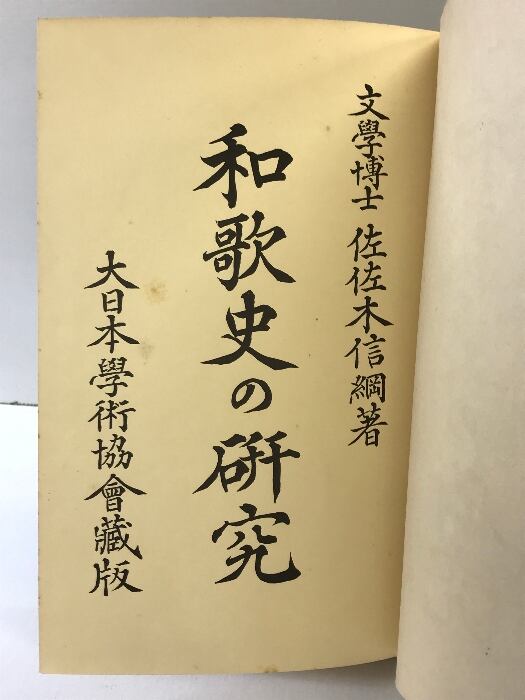 文學博士 佐佐木信綱著
和歌史の研究
大日本學術協會藏版